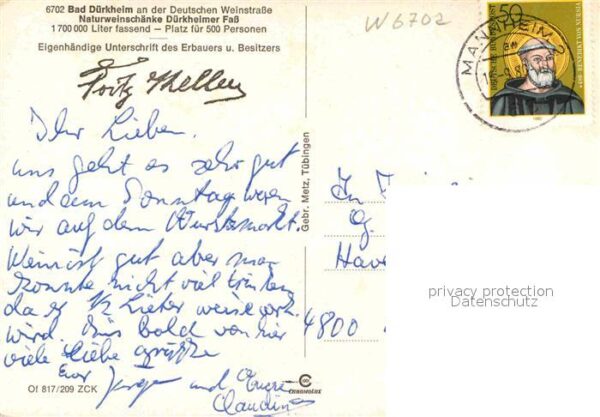 6702 Bad Dürkheim an der Deutschen Weinstraße
Naturweinschänke Dürkheimer Faß
1 700 000 Liter fassend — Platz für 500 Personen
Eigenhändige Unterschrift des Erbauers u. Besitzers
Fritz Keller
W 6702
50
DEUTSCHE BUNDESPOST
MANNHEIM 2
Ihr Lieben.
uns geht es sehr gut
und am Sonntag waren
wir auf dem Wurstmarkt.
Wein ist gut aber man
konnte nicht viel trinken
da er 1/2 Liter weise verk.
wird. Bis bald von hier
viele liebe Grüße
Euer Jürgen und Eure
Claudia
Gebr. Metz, Tübingen
4800
privacy protection
Datenschutz
Of 817/209 ZCK
CHROMOLUX